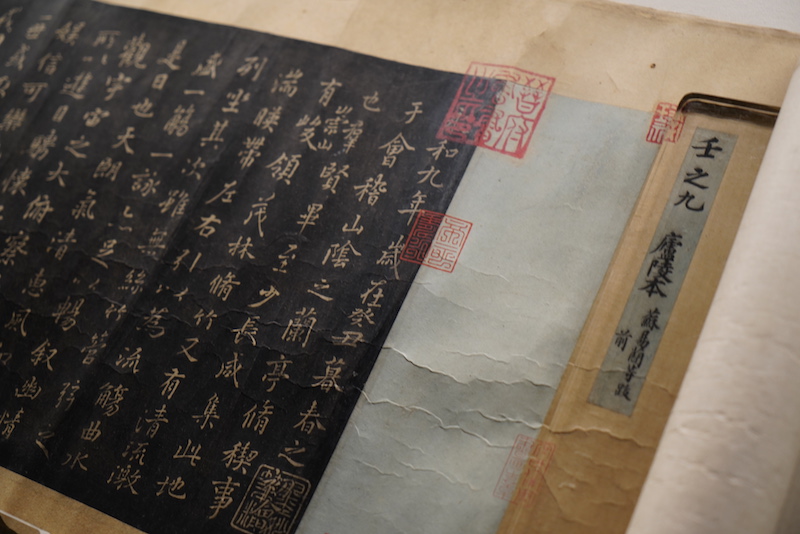 壬之九
廬陵本
蘇易簡等跋
前
和九年歲在癸丑暮春之
于會稽山陰之蘭亭脩稧事
也群賢畢至少長咸集此地
有崇山峻領茂林脩竹又有清流激
湍暎帶左右引以為流觴曲水
列坐其次雖無絲竹管弦之
盛一觴一詠亦足以暢叙幽情
是日也天朗氣清惠風
觀宇宙之大俯察
所以遊目騁懷
娛信可